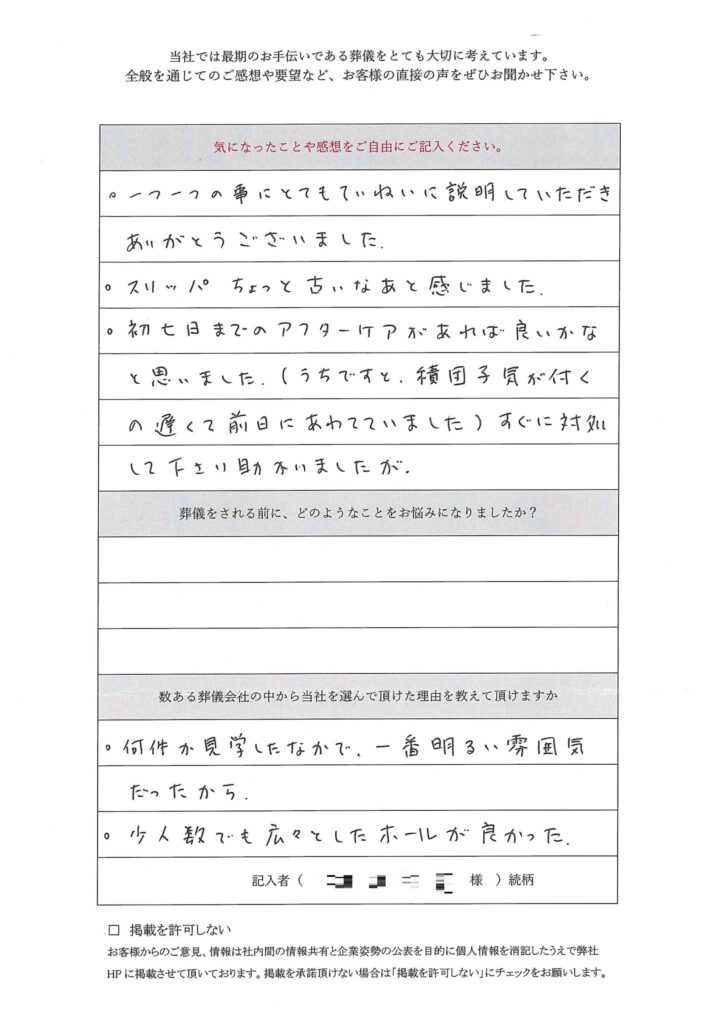 当社では最期のお手伝いである葬儀をとても大切に考えています。
全般を通じてのご感想や要望など、お客様の直接の声をぜひお聞かせ下さい。
気になったことや感想をご自由にご記入ください。
○一つ一つの事にとてもていねいに説明していただき
ありがとうございました.
○スリッパ ちょっと古いなあと感じました.
○初七日までのアフターケアがあれば良いかな
と思いました.(うちですと、積団子気が付く
の遅くて前日にあわてていました)すぐに対処
して下さり助かいましたが.
葬儀をされる前に、どのようなことをお悩みになりましたか？
数ある葬儀会社の中から当社を選んで頂けた理由を教えて頂けますか
○何件か見学したなかで、一番明るい雰囲気
だったから.
○少人数でも広々としたホールが良かった.
記入者（ 様 ）続柄
□ 掲載を許可しない
お客様からのご意見、情報は社内間の情報共有と企業姿勢の公表を目的に個人情報を消記したうえで弊社
HPに掲載させて頂いております。掲載を承諾頂けない場合は「掲載を許可しない」にチェックをお願いします。